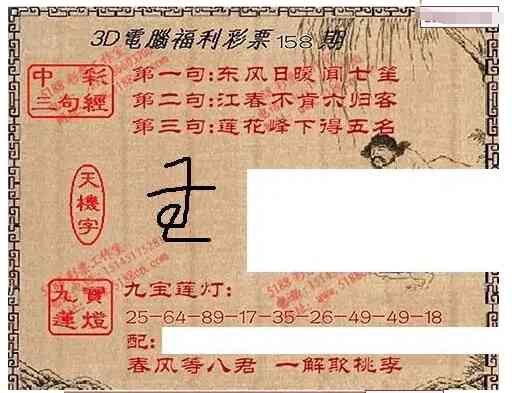 3D電腦福利彩票158期
中彩
三句經
第一句:东风日暖闻七笙
第二句:江春不肯六归客
第三句:莲花峰下得五名
天機字
九寶
蓮燈
九宝莲灯:
25-64-89-17-35-26-49-49-18
配:
春风等八君 一解歌桃李